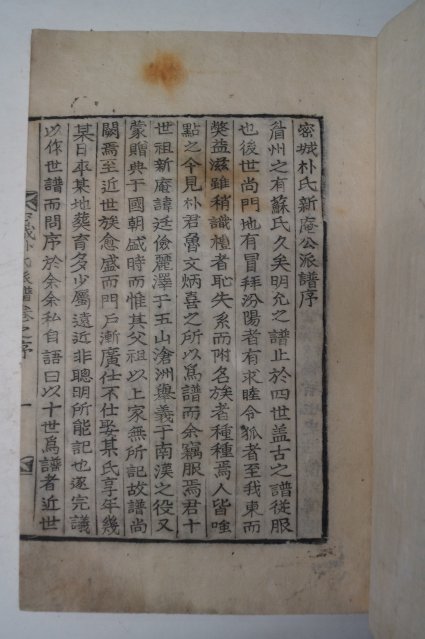 密城朴氏新庵公派譜序
眉州之有蘇氏久矣明允之譜止於四世盖古之譜從服
也後世尚門地有冒拜汾陽者有求睦令狐者至我東而
獘益滋雖稍識禮者恥失系而附名族者種種焉人皆唾
點之今見朴君魯文炳喜之所以爲譜而余竊服焉君十
世祖新庵諱廷儉麗澤于玉山滄洲舉義于南漢之役又
蒙贈典于國朝盛時而惟其父祖以上家無所記故譜尚
闕焉至近世族愈盛而門戶漸廣仕不仕娶某氏享年幾
某日卒某地葬育多少屬遠近非聰明所能記也遂完議
以作世譜而問序於余余私自語曰以十世爲譜者近世
派譜卷之序
一